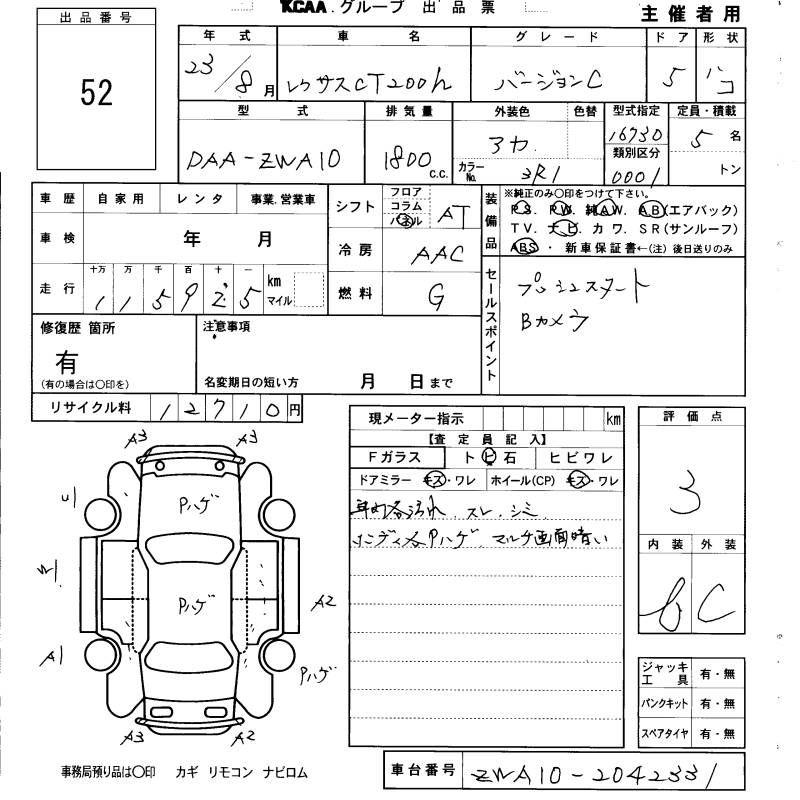 KCAA.グループ 出品票
主催者用
出品番号
52
年式 車名 グレード ドア 形状
23/8月 レクサスCT200h バージョンC 5 ハコ
型式 排気量 外装色 色替 型式指定 定員・積載
DAA-ZWA10 1800 c.c. アカ 16730 5名
カラーNo. 3R1 類別区分 0001 トン
車歴 自家用 レンタ 事業.営業車
車検 年 月
走行 十万 万 千 百 十 一 km マイル
115925
シフト フロア コラム パネル AT
冷房 AAC
燃料 G
装備品
※純正のみ〇印をつけて下さい。
PS. PW. 純AW. AB(エアバック)
TV. ナビ カワ. SR(サンルーフ)
ABS・新車保証書←(注)後日送りのみ
セールスポイント
プッシュスタート
Bカメラ
修復歴 箇所
有
(有の場合は〇印を)
注意事項
名変期日の短い方 月 日まで
リサイクル料 12710円
現メーター指示 km
【査定員記入】
Fガラス トビ石 ヒビワレ
ドアミラー キズ・ワレ ホイール(CP) キズ・ワレ
車内各汚れ.スレ.シミ
インディ各Pハゲ.マルチ画面暗い
評価点
3
内装 外装
C
ジャッキ工具 有・無
パンクキット 有・無
スペアタイヤ 有・無
A3 A3
Pハゲ
U1
W1
Pハゲ
A2
A1
Pハゲ
A3 A2
事務局預り品は〇印 カギ リモコン ナビロム
車台番号 ZWA10-2042331